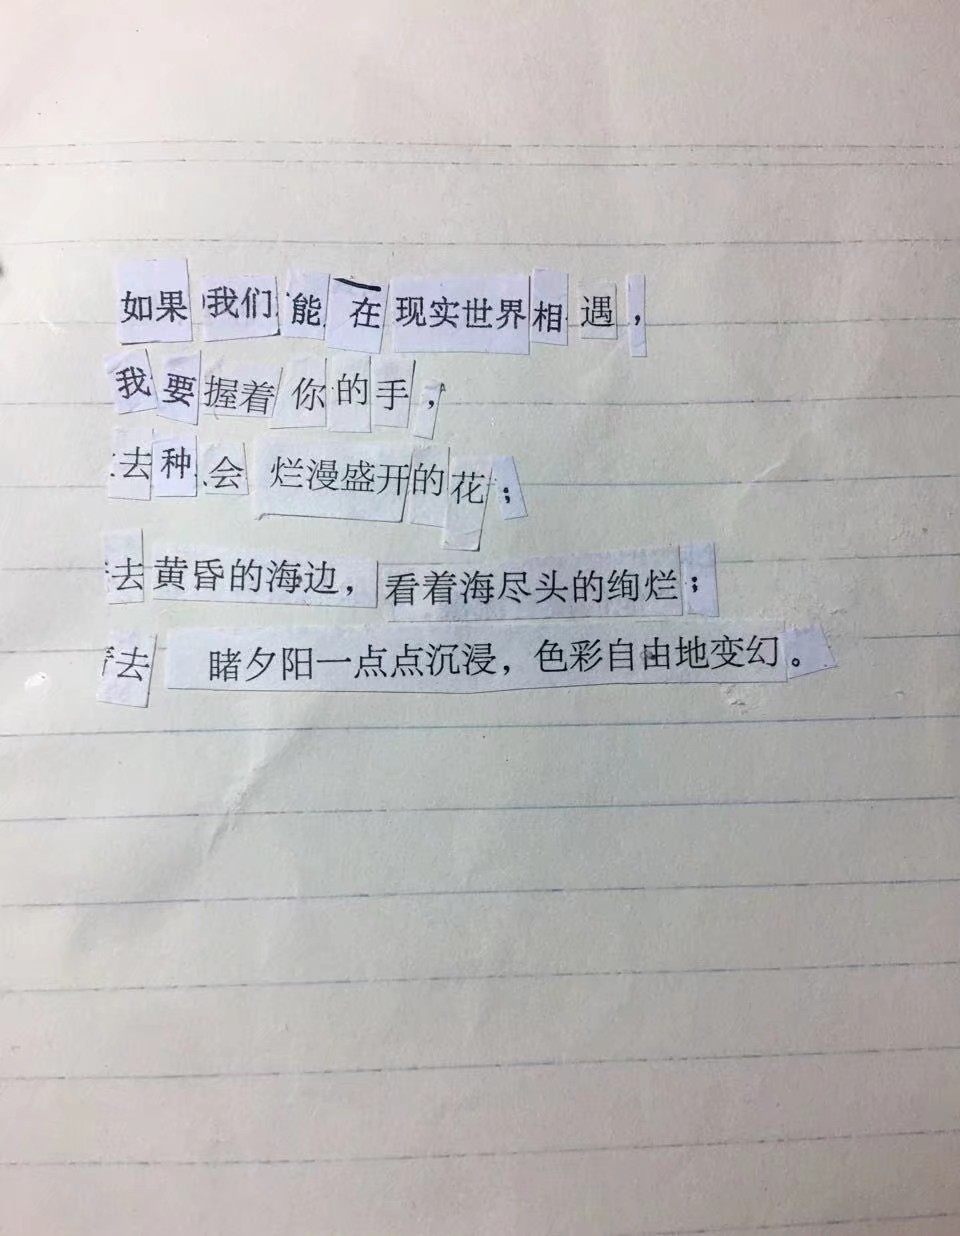 如果我们能在现实世界相遇，
我要握着你的手，
去种会烂漫盛开的花；
去黄昏的海边，看着海尽头的绚烂；
去睹夕阳一点点沉浸，色彩自由地变幻。